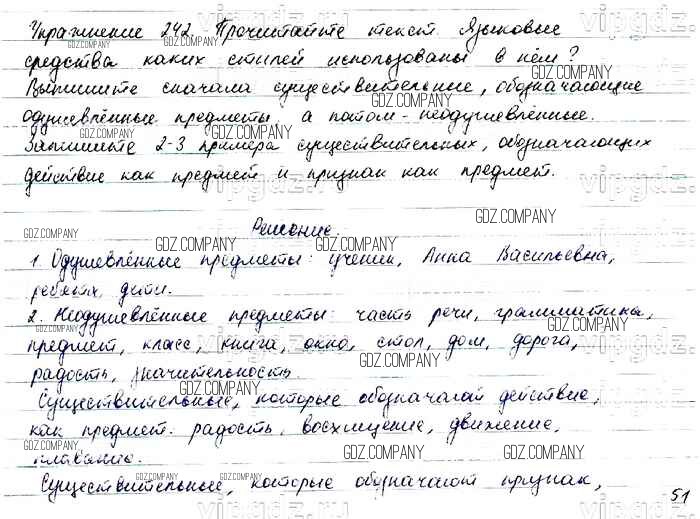 Упражнение 242. Прочитайте текст. Языковые
средства каких стилей использованы в нём?
Выпишите сначала существительные, обозначающие
одушевлённые предметы, а потом - неодушевлённые.
Запишите 2-3 примера существительных, обозначающих
действие как предмет и признак как предмет.
Решение.
1. Одушевлённые предметы: ученик, Анна Васильевна,
ребята, дети.
2. Неодушевлённые предметы: часть речи, грамматика,
предмет, класс, книга, окно, стол, дом, дорога,
радость, значительность.
Существительные, которые обозначают действие,
как предмет: радость, восхищение, движение,
плавание.
Существительные, которые обозначают признак,
51